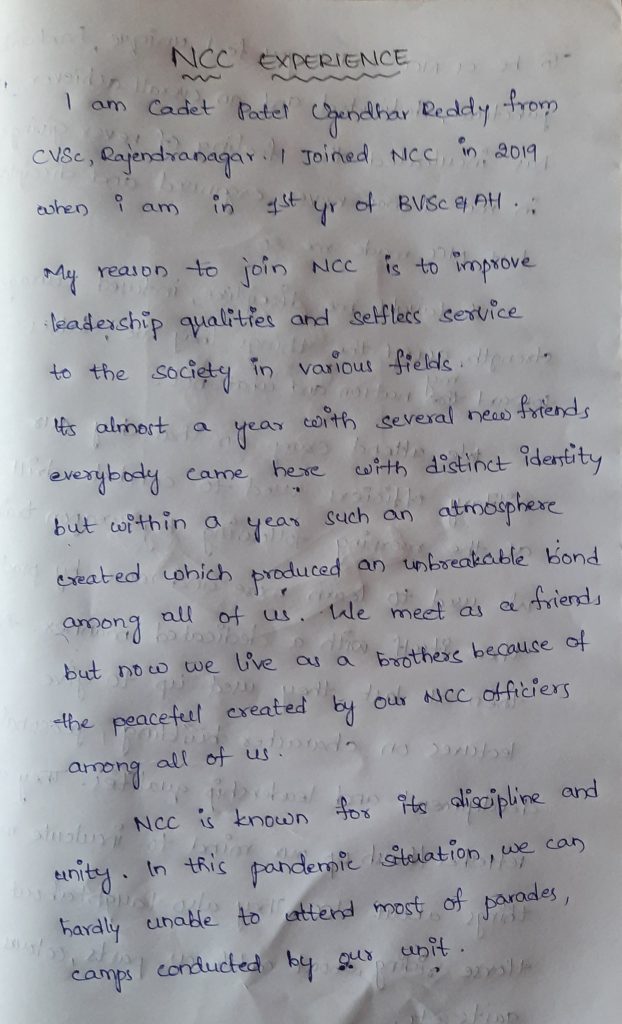 NCC EXPERIENCE
I am Cadet Patel Ugendhar Reddy from
CVSc, Rajendranagar. I Joined NCC in 2019
when i am in 1st yr of BVSc & AH.
My reason to join NCC is to improve
leadership qualities and selfless service
to the society in various fields.
Its almost a year with several new friends
everybody came here with distinct identity
but within a year such an atmosphere
created which produced an unbreakable bond
among all of us. We meet as a friends
but now we live as a brothers because of
the peacefull created by our NCC officiers
among all of us.
NCC is known for its discipline and
unity. In this pandemic situation, we can
hardly unable to attend most of parades,
camps conducted by our unit.